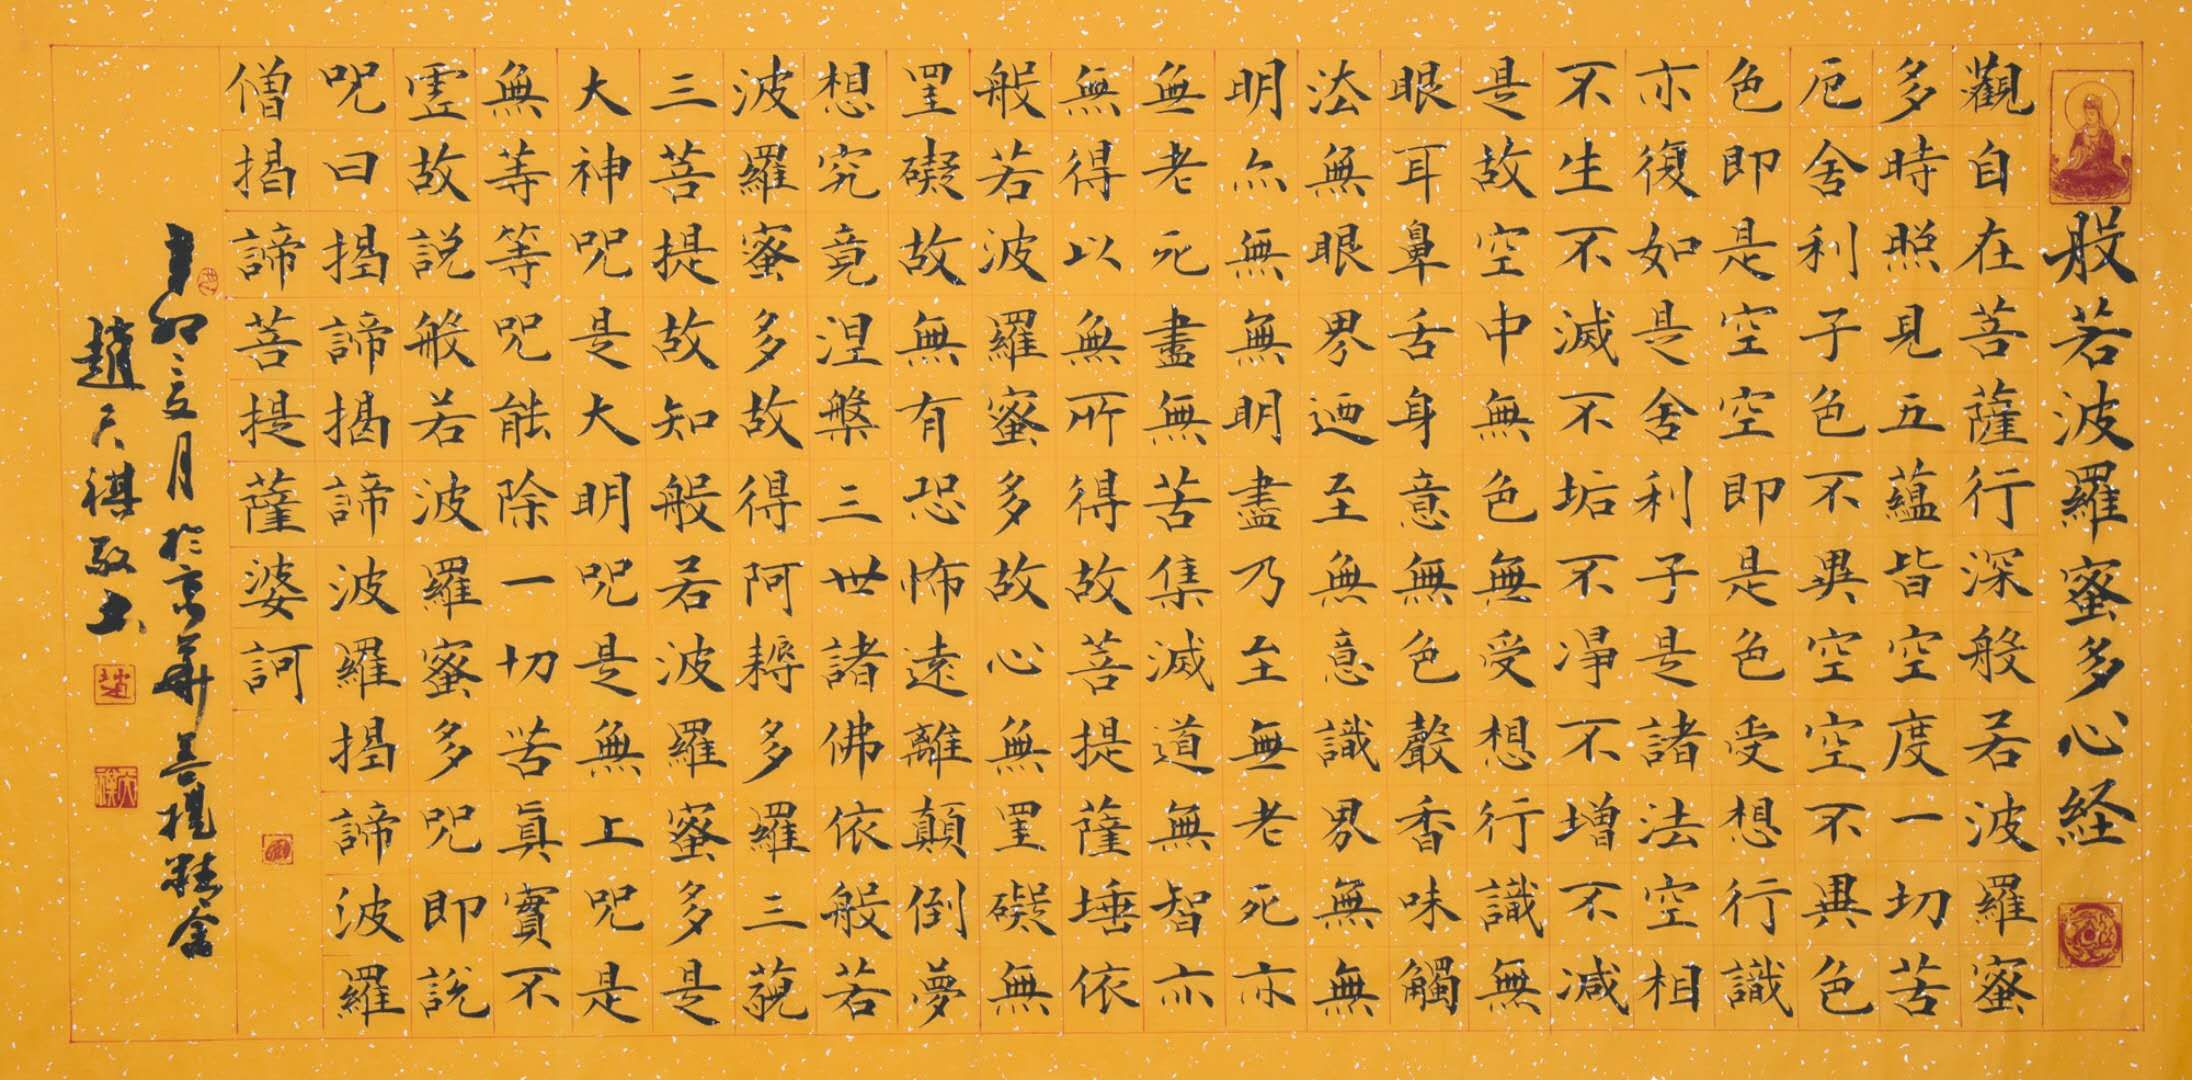 般若波羅蜜多心経
觀自在菩薩行深般若波羅蜜
多時照見五蘊皆空度一切苦
厄舍利子色不異空空不異色
色即是空空即是色受想行識
亦復如是舍利子是諸法空相
不生不滅不垢不淨不增不減
是故空中無色無受想行識無
眼耳鼻舌身意無色聲香味觸
法無眼界迺至無意識界無無
明亦無無明盡乃至無老死亦
無老死盡無苦集滅道無智亦
無得以無所得故菩提薩埵依
般若波羅蜜多故心無罣礙無
罣礙故無有恐怖遠離顛倒夢
想究竟涅槃三世諸佛依般若
波羅蜜多故得阿耨多羅三藐
三菩提故知般若波羅蜜多是
大神咒是大明咒是無上咒是
無等等咒能除一切苦真實不
虛故說般若波羅蜜多咒即說
咒曰揭諦揭諦波羅揭諦波羅
僧揭諦菩提薩婆訶
卯之夏月於京華菩提精舍
趙天祺敬書